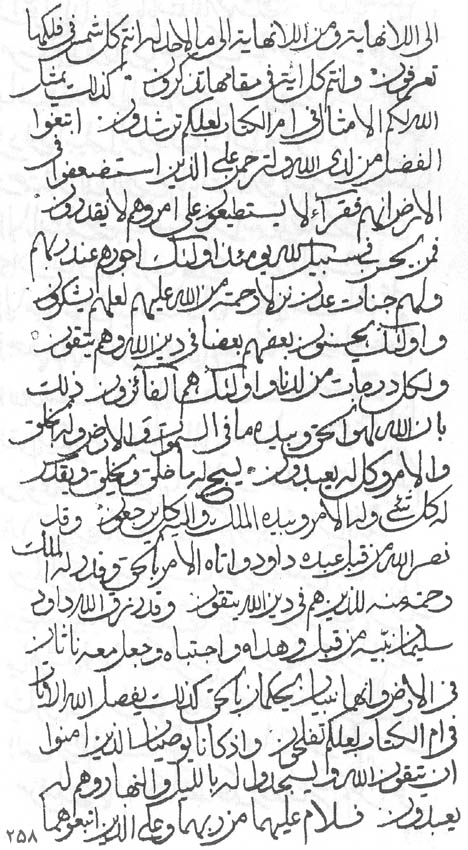 الى اللانهاية ومن اللانهاية الى ما لاحد له انتم كل شمس في فلكها
تعرفون وانتم كل اية في مقامها تذكرون كذلك يمثل
الله لكم الامثال في ام الكتاب لعلكم ترشدون ابتغوا
الفضل من لدى الله ولترحمن على الذين استضعفوا في
الارض انهم فقراء لا يستطيعون على امر وهم لا يقدرون
فمن يحسن في سبيل الله يومئذ اولئك اجورهم عند ربهم
ولهم جنات عدن نزلا رحمة من الله عليهم لعلهم يشكرون
واولئك يحسنون بعضهم بعضا في دين الله وهم يتقون
ولكل درجات من لدنا واولئك هم الفائزون ذلك
بان الله لهو الحق وبيده ما في السموات والارض وله الخلق
والامر وكل له يعبدون يسبح له ما خلق ويخلق ويقدر
له كل شئ وله الامر وبيده الملك واليه كل يرجعون وقد
نصر الله من قبل عبده داود واتاه الامر بالحق وقدر له الملك
رحمة منه للذين هم في دين الله يتقون وقد رزق الله داود
سليمان نبيه من قبل وهداه واجتباه وجعل معه
في الارض وانهما نبيان يحكمان بالحق كذلك يفصل الله الايات
في ام الكتاب لعلكم تفلحون واذ كانا يوصيان الذين امنوا
ان يتقون الله وليسجدوا له بالليل والنهار وهم له
يعبدون فسلام عليهما من ربهما وعلى الذين اتبعوهما
٢٥٨